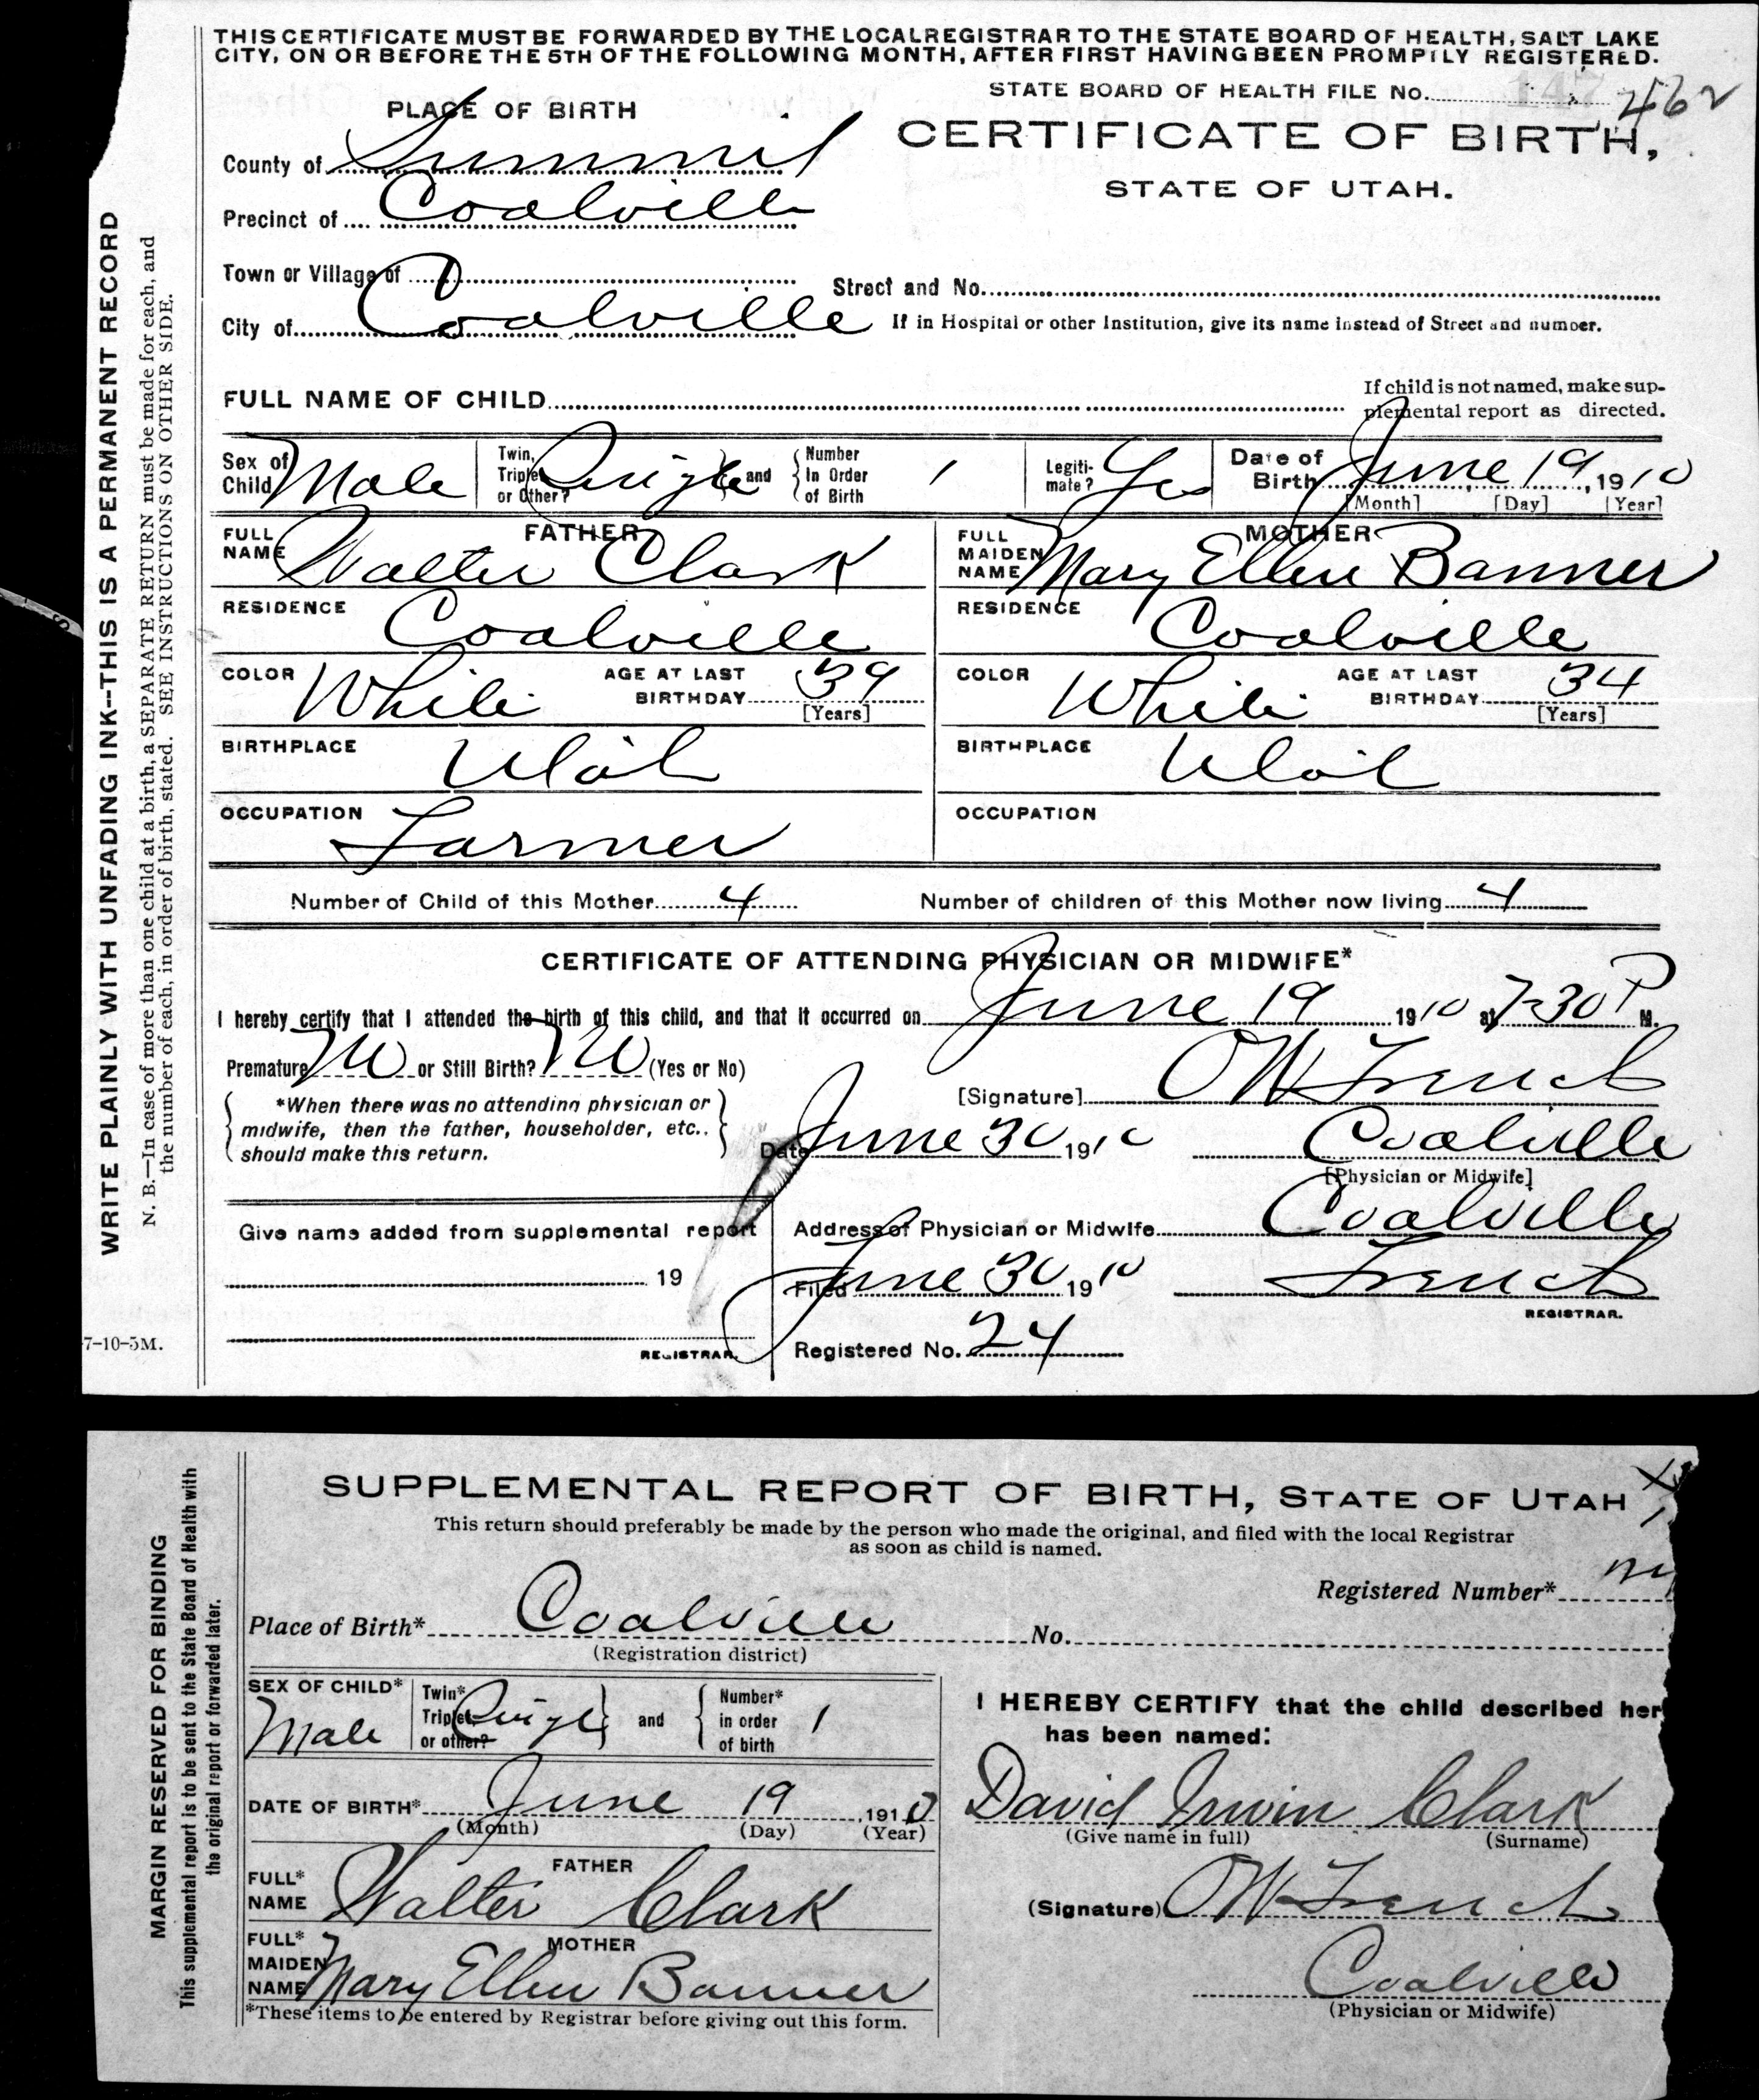 THIS CERTIFICATE MUST BE FORWARDED BY THE LOCAL REGISTRAR TO THE STATE BOARD OF HEALTH, SALT LAKE
CITY, ON OR BEFORE THE 5TH OF THE FOLLOWING MONTH, AFTER FIRST HAVING BEEN PROMPTLY REGISTERED.
STATE BOARD OF HEALTH FILE No. 147 462
PLACE OF BIRTH
CERTIFICATE OF BIRTH,
STATE OF UTAH.
County of Summit
Precinct of Coalville
Town or Village of
Street and No.
City of Coalville If in Hospital or other Institution, give its name instead of Street and number.
FULL NAME OF CHILD
If child is not named, make sup-
plemental report as directed.
Sex of Child Male
Twin, Triplet or Other? Single and Number In Order of Birth 1
Legiti-mate? Yes
Date of Birth June 19, 1910
[Month] [Day] [Year]
FATHER
FULL NAME Walter Clark
MOTHER
FULL MAIDEN NAME Mary Ellen Banner
RESIDENCE Coalville
RESIDENCE Coalville
COLOR White AGE AT LAST BIRTHDAY 39 [Years]
COLOR White AGE AT LAST BIRTHDAY 34 [Years]
BIRTHPLACE Utah
BIRTHPLACE Utah
OCCUPATION Farmer
OCCUPATION
Number of Child of this Mother 4 Number of children of this Mother now living 4
CERTIFICATE OF ATTENDING PHYSICIAN OR MIDWIFE*
I hereby certify that I attended the birth of this child, and that it occurred on June 19 1910 at 7-30 P M.
Premature No or Still Birth? No (Yes or No)
[Signature] OW French
*When there was no attending physician or
midwife, then the father, householder, etc.,
should make this return.
Date June 30 1910 Coalville
[Physician or Midwife]
Give name added from supplemental report
19
REGISTRAR.
Address of Physician or Midwife Coalville
Filed June 30 1910 French
REGISTRAR.
Registered No. 24
7-10-5M.
WRITE PLAINLY WITH UNFADING INK--THIS IS A PERMANENT RECORD
N. B.—In case of more than one child at a birth, a SEPARATE RETURN must be made for each, and
the number of each, in order of birth, stated. SEE INSTRUCTIONS ON OTHER SIDE.
SUPPLEMENTAL REPORT OF BIRTH, STATE OF UTAH
This return should preferably be made by the person who made the original, and filed with the local Registrar
as soon as child is named.
Registered Number*
Place of Birth* Coalville No.
(Registration district)
SEX OF CHILD* Male
Twin* Triplet or other? Single and Number* in order of birth 1
DATE OF BIRTH* June 19 1910
(Month) (Day) (Year)
FATHER
FULL* NAME Walter Clark
MOTHER
FULL* MAIDEN NAME Mary Ellen Banner
*These items to be entered by Registrar before giving out this form.
I HEREBY CERTIFY that the child described her
has been named:
David Irwin Clark
(Give name in full) (Surname)
(Signature) OW French
Coalville
(Physician or Midwife)
MARGIN RESERVED FOR BINDING
This supplemental report is to be sent to the State Board of Health with
the original report or forwarded later.